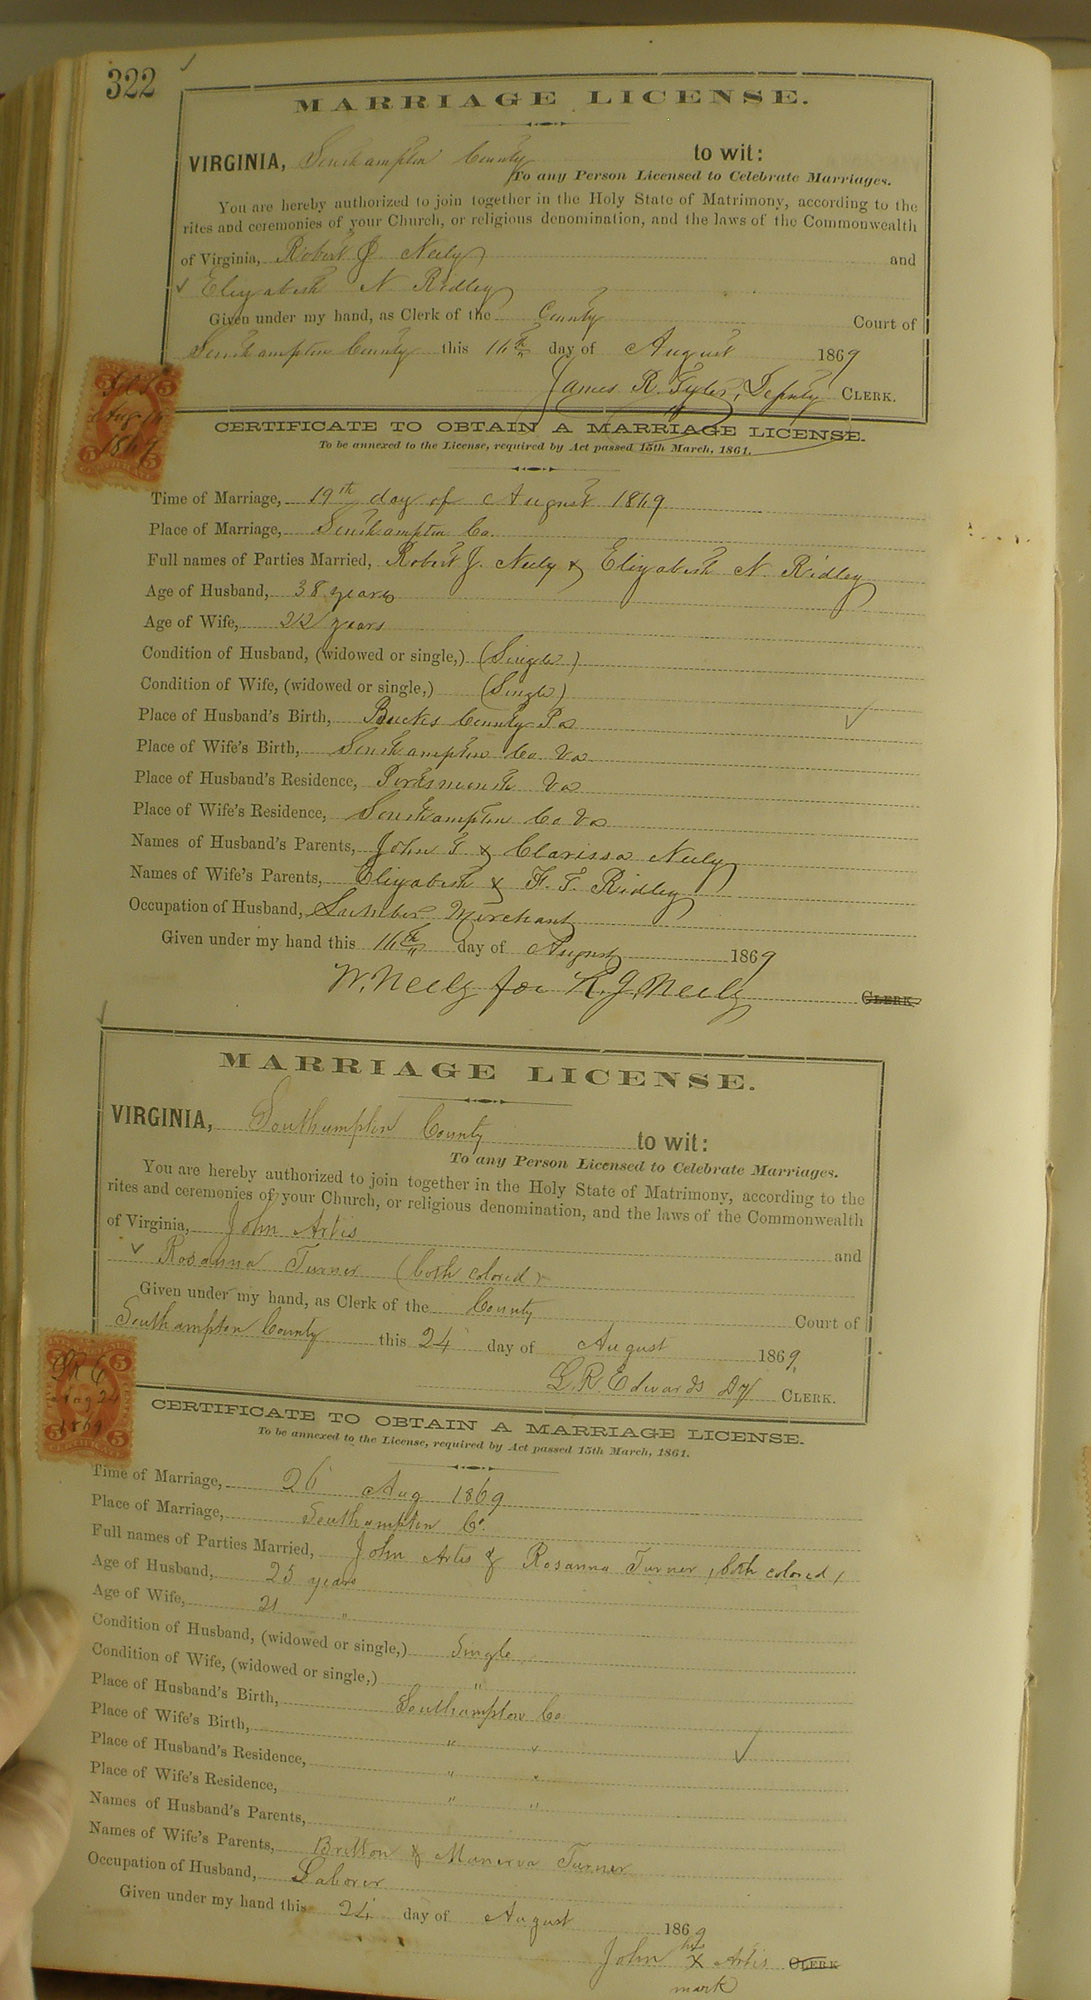 322
MARRIAGE LICENSE.
VIRGINIA, Southampton County to wit:
To any Person Licensed to Celebrate Marriages.
You are hereby authorized to join together in the Holy State of Matrimony, according to the
rites and ceremonies of your Church, or religious denomination, and the laws of the Commonwealth
of Virginia, Robert J. Neely and
Elizabeth N Ridley
Given under my hand, as Clerk of the County Court of
Southampton County this 16th day of August 1869
James R. Tyler, Deputy CLERK.
5 5
Aug 16
1869
5 5
CERTIFICATE
CERTIFICATE TO OBTAIN A MARRIAGE LICENSE.
To be annexed to the License, required by Act passed 15th March, 1861.
Time of Marriage, 19th day of August 1869
Place of Marriage, Southampton Co.
Full names of Parties Married, Robert J. Neely & Elizabeth N. Ridley
Age of Husband, 38 years
Age of Wife, 22 years
Condition of Husband, (widowed or single,) (Single)
Condition of Wife, (widowed or single,) (Single)
Place of Husband's Birth, Bucks County Pa
Place of Wife's Birth, Southampton Co. Va
Place of Husband's Residence, Portsmouth Va
Place of Wife's Residence, Southampton Co Va
Names of Husband's Parents, John T & Clarissa Neely
Names of Wife's Parents, Elizabeth & F. T. Ridley
Occupation of Husband, Lumber Merchant
Given under my hand this 16th day of August 1869
W. Neely for R. J. Neely CLERK.
MARRIAGE LICENSE.
VIRGINIA, Southampton County to wit:
To any Person Licensed to Celebrate Marriages.
You are hereby authorized to join together in the Holy State of Matrimony, according to the
rites and ceremonies of your Church, or religious denomination, and the laws of the Commonwealth
of Virginia, John Artis and
Rosanna Turner (both colored)
Given under my hand, as Clerk of the County Court of
Southampton County this 24 day of August 1869,
L. R. Edwards Dy CLERK.
5
Aug 24
1869
5 5
CERTIFICATE
CERTIFICATE TO OBTAIN A MARRIAGE LICENSE.
To be annexed to the License, required by Act passed 15th March, 1861.
Time of Marriage, 26 Aug 1869
Place of Marriage, Southampton Co.
Full names of Parties Married, John Artis & Rosanna Turner, (both colored)
Age of Husband, 25 years
Age of Wife, 21 "
Condition of Husband, (widowed or single,) Single
Condition of Wife, (widowed or single,) "
Place of Husband's Birth, Southampton Co
Place of Wife's Birth, " "
Place of Husband's Residence, " "
Place of Wife's Residence, " "
Names of Husband's Parents,
Names of Wife's Parents, Britton & Manerva Turner
Occupation of Husband, Laborer
Given under my hand this 24 day of August 1869
John his X Artis CLERK
mark